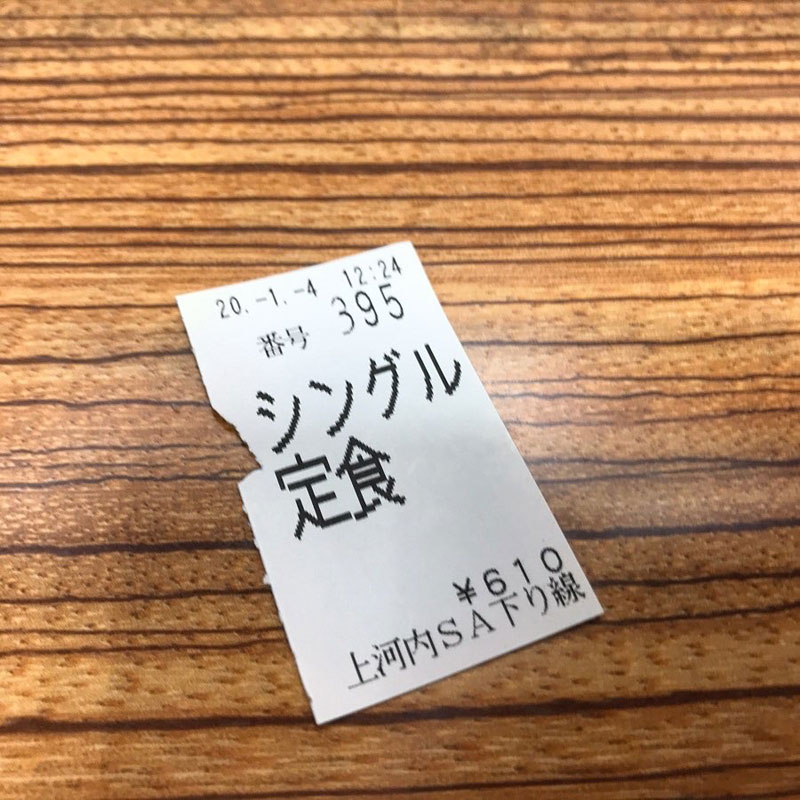 20.-1.-4 12:24
番号 395
シングル
定食
¥610
上河内SA下り線